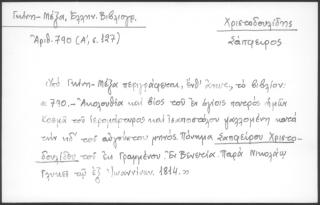 Γκίνη-Μέξα, Ελλην. Βιβλιογρ.
Χριστοδουλίδης
Σάπφειρος
Ἀριθ. 790 (Α', σ. 127)
Ὑπό Γκίνη-Μέξα περιγράφεται, ἔνθ' ἄνωτ., τό βιβλίον:
«790.- Ἀκολουθία καί βίος τοῦ ἐν ἁγίοις πατρός ἡμῶν
Κοσμᾶ τοῦ Ἱερομάρτυρος καί Ἰσαποστόλου ψαλλομένη κατά
τήν κδ' τοῦ αὐγούστου μηνός. Πόνημα Σαπφείρου Χριστο-
δουλίδου τοῦ ἐκ Γραμμένου. Ἐν Βενετίᾳ. Παρά Νικολάῳ
Γλυκεῖ τῷ ἐξ Ἰωαννίνων. 1814.»